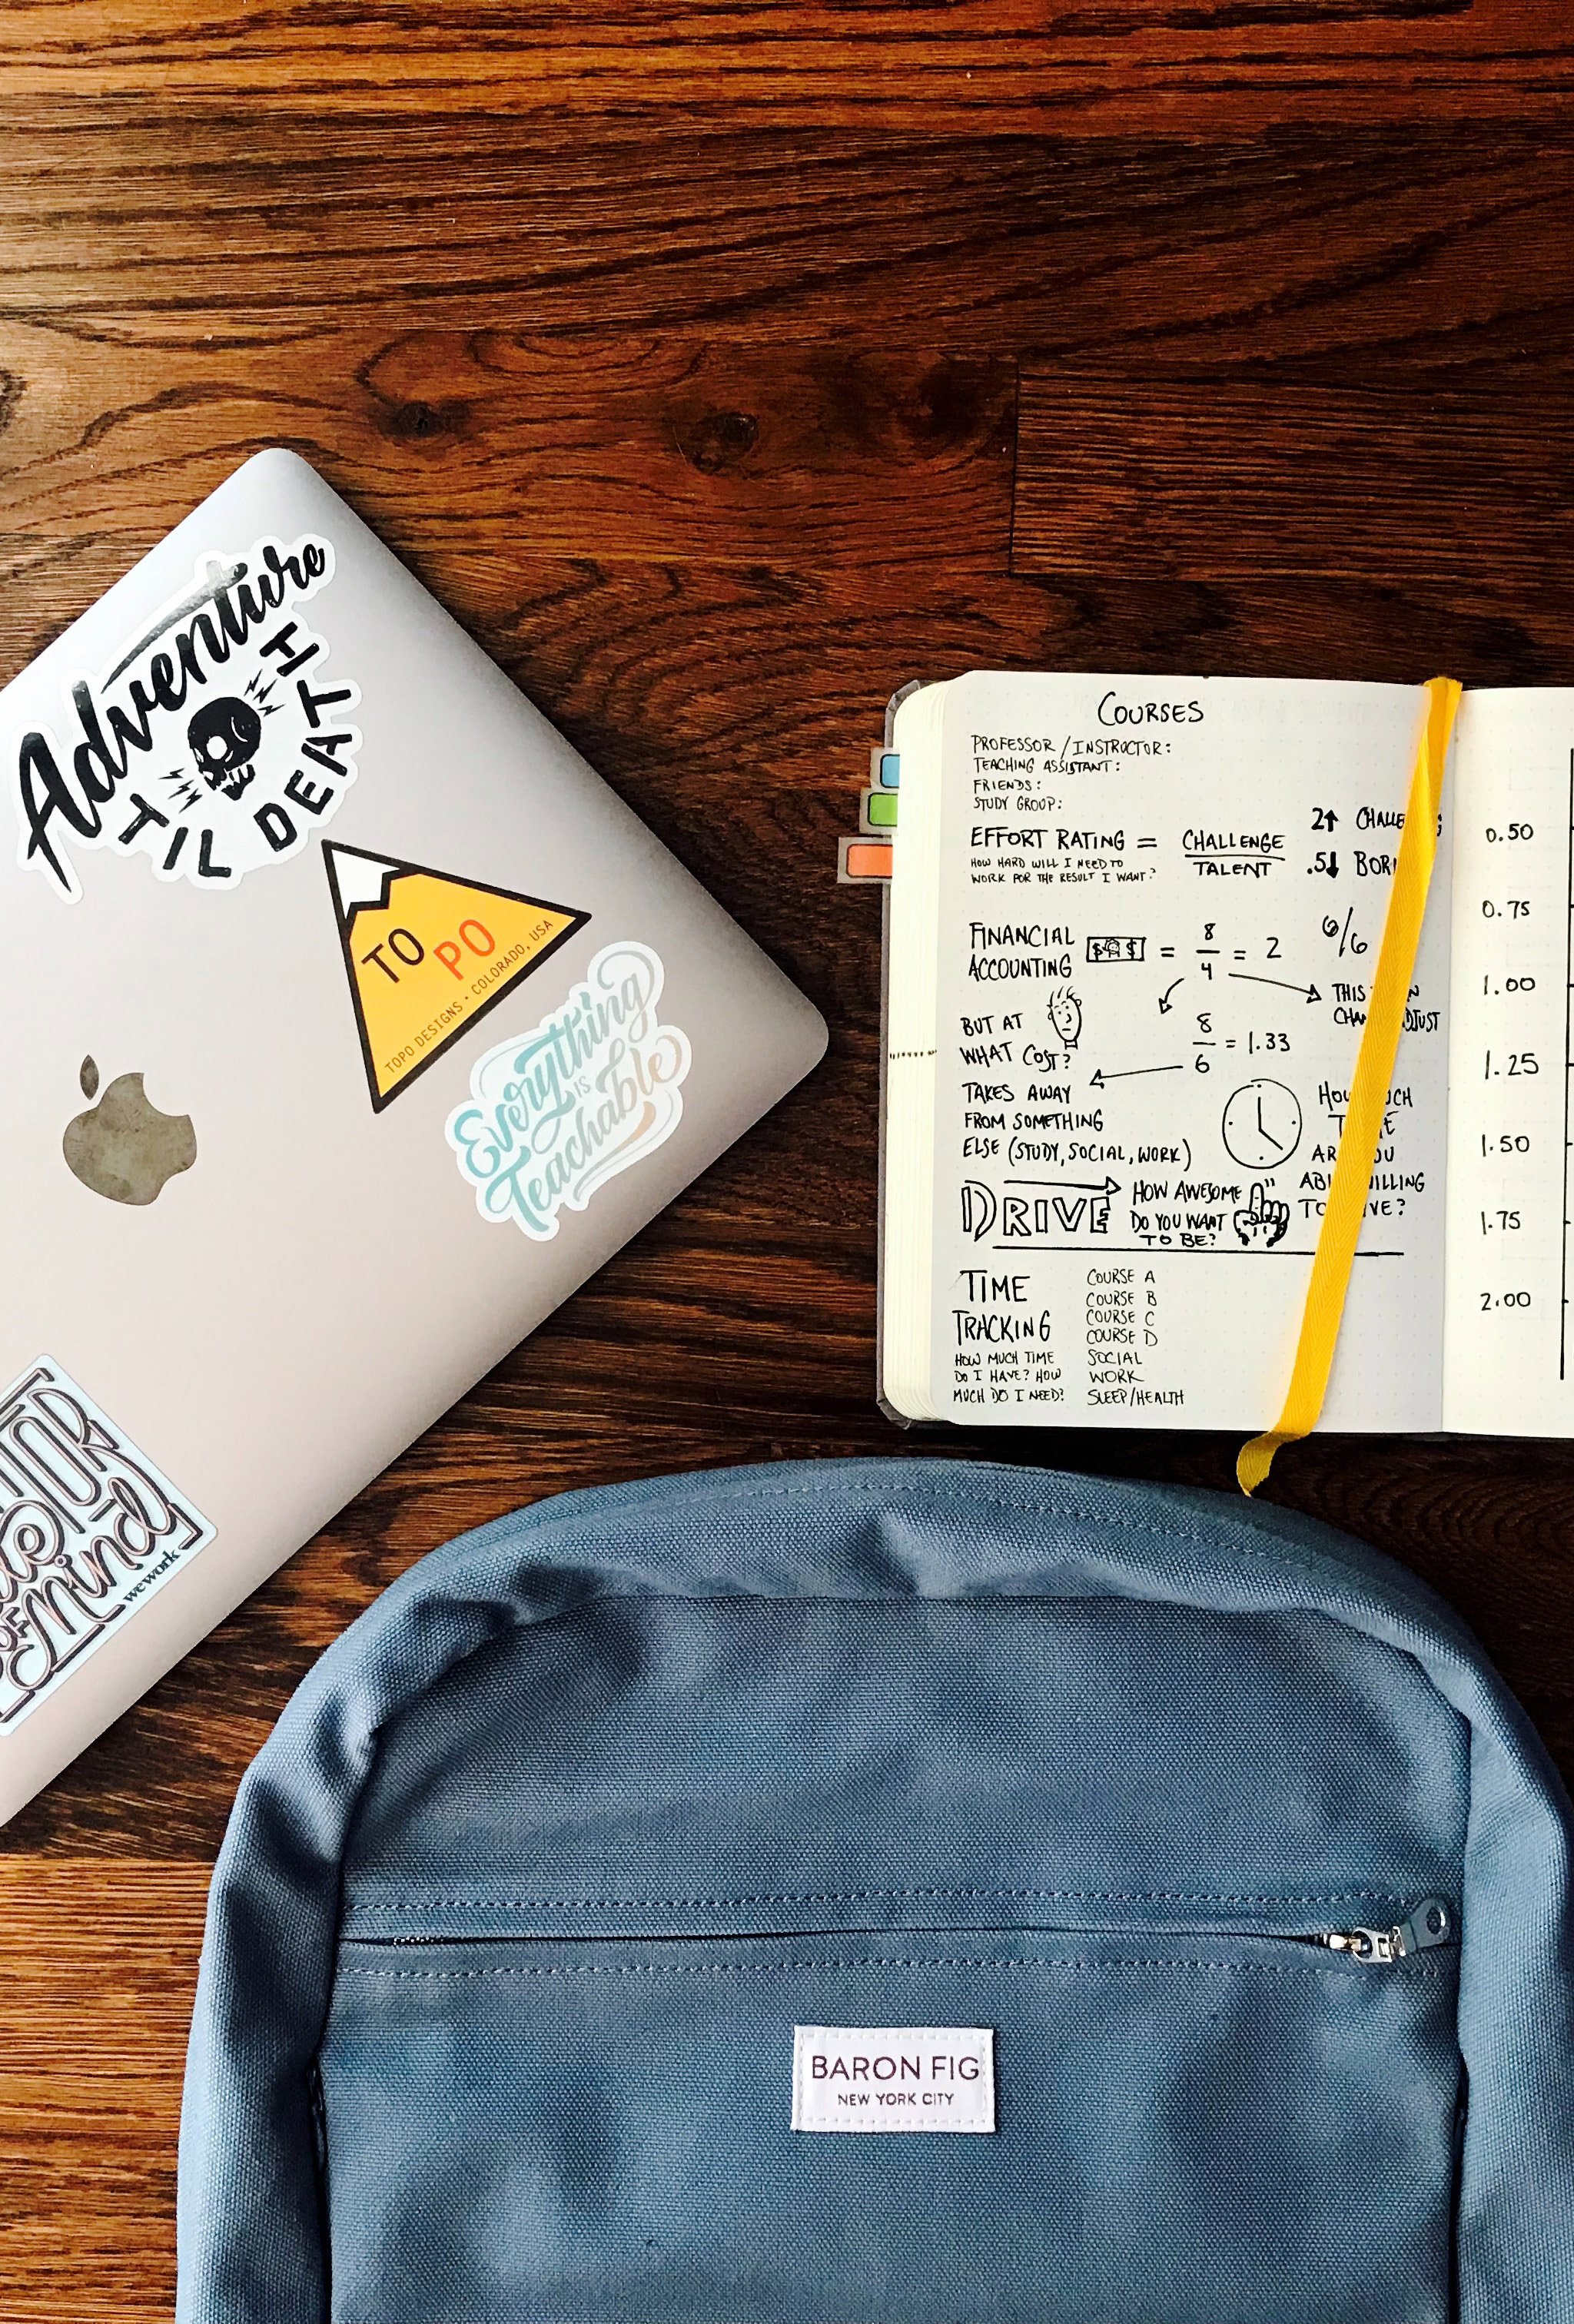 Adventure
TIL DEATH
TO
PO
TOPO DESIGNS • COLORADO, USA
Everything
IS
Teachable
OF
Mind
wework
COURSES
PROFESSOR/INSTRUCTOR:
TEACHING ASSISTANT:
FRIENDS:
STUDY GROUP:
EFFORT RATING = CHALLENGE
TALENT
HOW HARD WILL I NEED TO
WORK FOR THE RESULT I WANT?
2↑
.5↓
FINANCIAL
ACCOUNTING
$ $ = 8
4
= 2
6/6
THIS
BUT AT
WHAT COST?
8
6
= 1.33
TAKES AWAY
FROM SOMETHING
ELSE (STUDY, SOCIAL, WORK)
DRIVE
HOW AWESOME
DO YOU WANT
TO BE?
TIME
TRACKING
HOW MUCH TIME
DO I HAVE? HOW
MUCH DO I NEED?
COURSE A
COURSE B
COURSE C
COURSE D
SOCIAL
WORK
SLEEP/HEALTH
0.50
0.75
1.00
1.25
1.50
1.75
2.00
BARON FIG
NEW YORK CITY